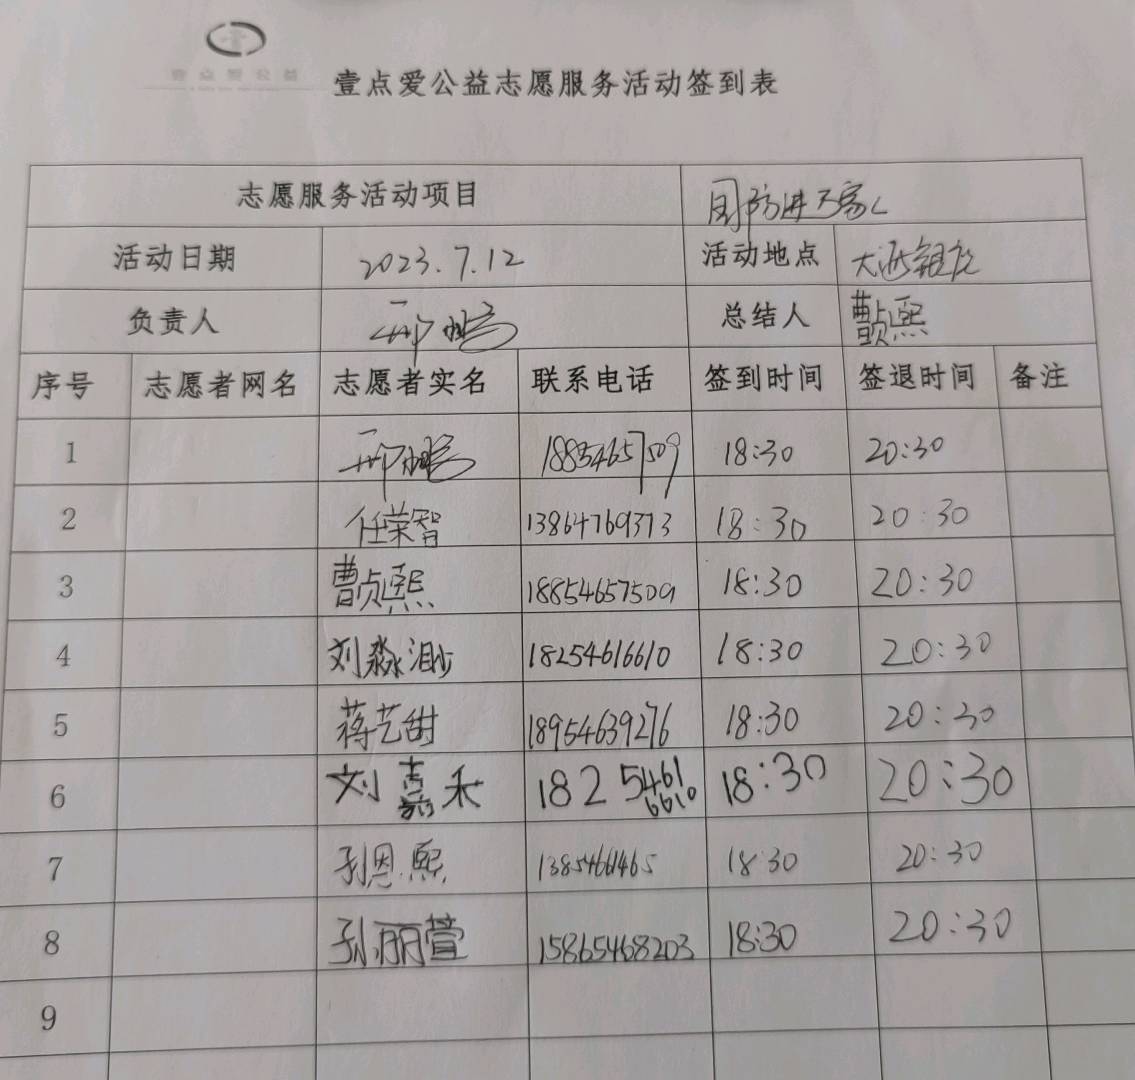 壹点爱公益
壹点爱公益志愿服务活动签到表
志愿服务活动项目 国防进万家
活动日期 2023.7.12 活动地点
负责人 邢鹏 总结人 曹贞熙
序号 志愿者网名 志愿者实名 联系电话 签到时间 签退时间 备注
1 邢鹏 18854657509 18:30 20:30
2 任荣智 13864769373 18:30 20:30
3 曹贞熙 18854657509 18:30 20:30
4 刘淼渺 18254616610 18:30 20:30
5 蒋艺甜 18954639276 18:30 20:30
6 刘嘉禾 18254616610 18:30 20:30
7 孙恩熙 1385461465 18:30 20:30
8 孙丽萱 15865468203 18:30 20:30
9